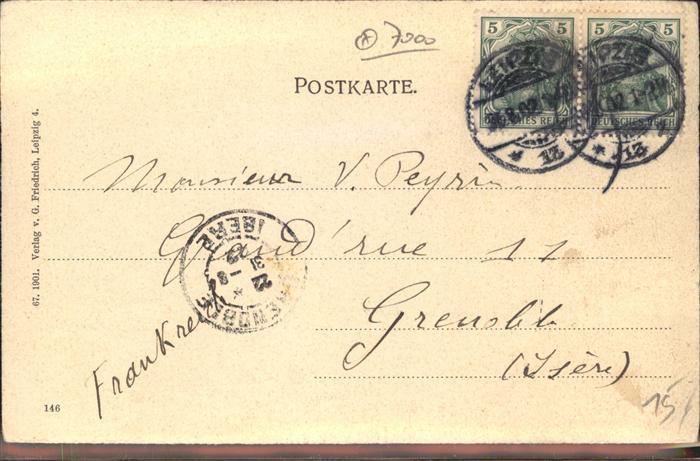 7000
5 5 5 5
DEUTSCHES REICH DEUTSCHES REICH
LEIPZIG
13
* 13
POSTKARTE.
Monsieur V. Peyrin
Grand'rue 11
Grenoble
(Isère)
Frankreich
GRENOBLE
ISERE
67. 1901. Verlag v. G. Friedrich, Leipzig 4.
146
15